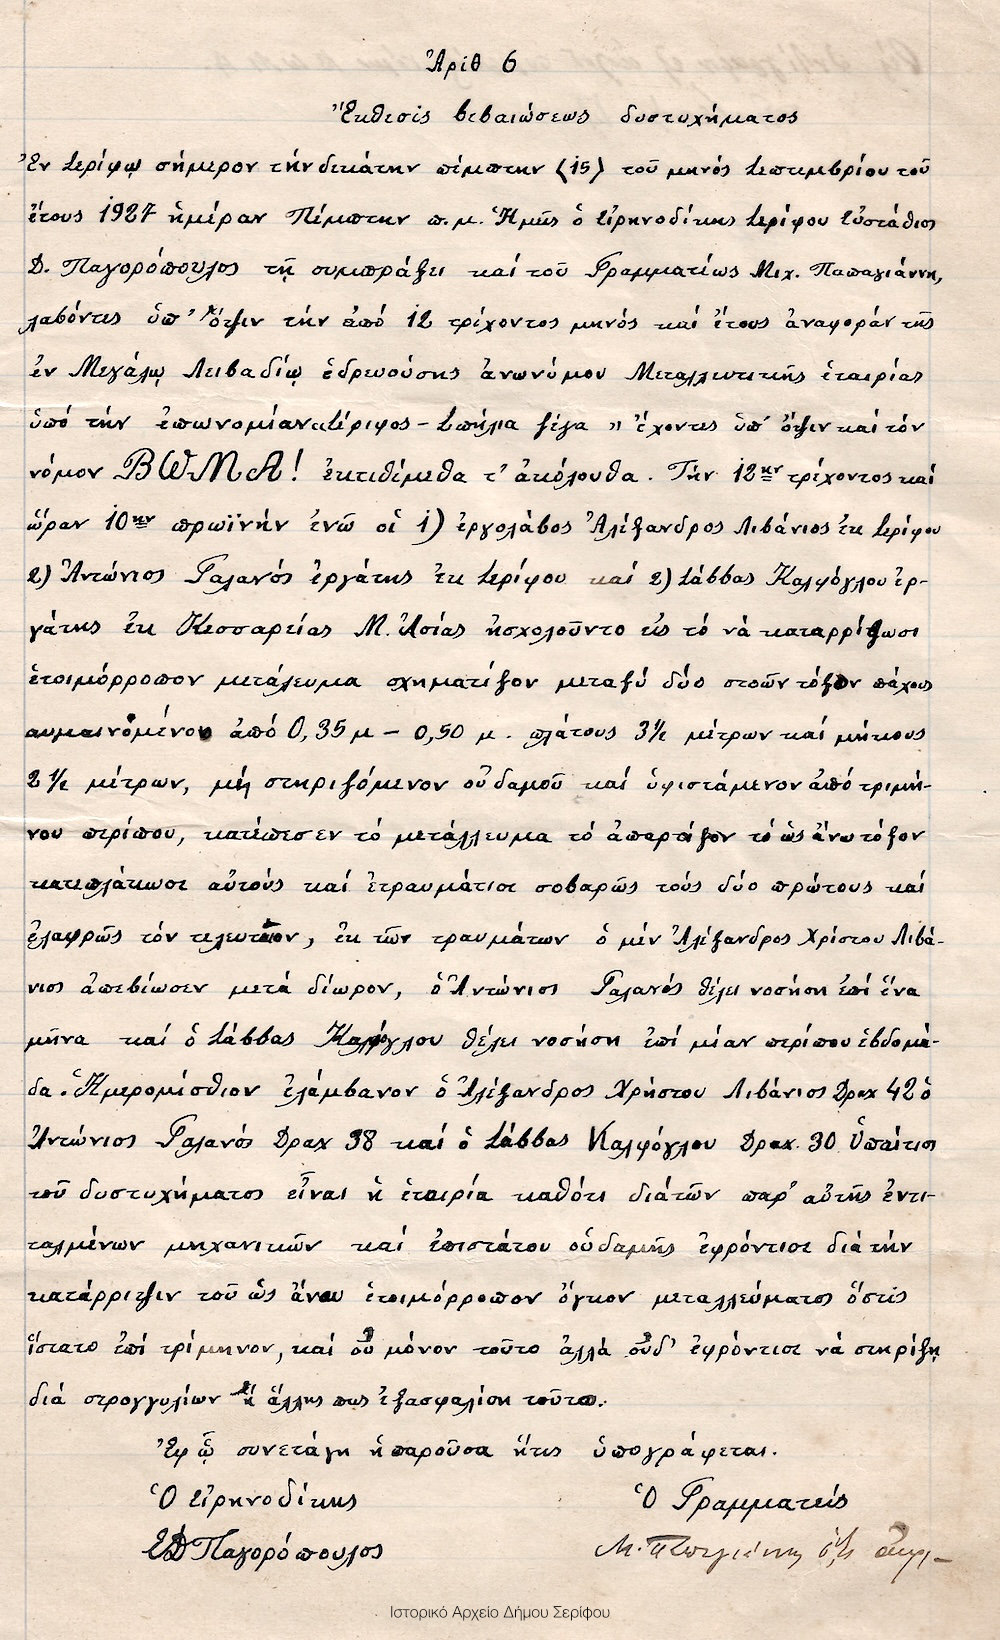 Ἀριθ 6
Ἔκθεσις βεβαιώσεως δυστυχήματος
Ἐν Σερίφῳ σήμερον τήν δεκάτην πέμπτην (15) τοῦ μηνός Σεπτεμβρίου τοῦ
ἔτους 1927 ἡμέραν Πέμπτην π.μ. Ἡμεῖς ὁ Εἰρηνοδίκης Σερίφου Εὐστάθιος
Δ. Παγορόπουλος τῇ συμπράξει καί τοῦ Γραμματέως Μιχ. Παπαγιάννη,
λαβόντες ὑπ' ὄψιν τήν ἀπό 12 τρέχοντος μηνός καί ἔτους ἀναφοράν τῆς
ἐν Μεγάλῳ Λειβαδίῳ ἑδρευούσης ἀνωνύμου Μεταλλευτικῆς ἑταιρίας
ὑπό τήν ἐπωνομίαν «Σέριφος - Σπήλια ἔχοντες ὑπ' ὄψιν καί τόν
νόμον ΒΩΜΑ! ἐκτιθέμεθα τ' ἀκόλουθα. Τήν 12ην τρέχοντος καί
ὥραν 10ην πρωϊνήν ἐνῶ οἱ 1) ἐργολάβος Ἀλέξανδρος Λιβάνιος ἐκ Σερίφου
2) Ἀντώνιος Γαλανός ἐργάτης ἐκ Σερίφου καί 2) Σάββας Καλφόγλου ἐρ-
γάτης ἐκ Κεσσαρείας Μ. Ἀσίας ἠσχολοῦντο εἰς τό νά καταρρίψωσι
ἑτοιμόρροπον μετάλευμα σχηματίζον μεταξύ δύο στοῶν τόξον πάχους
ἀπό 0,35 μ - 0,50 μ. πλάτους 3½ μέτρων καί μήκους
2½ μέτρων, μή στηριζόμενον οὐδαμοῦ καί ὑφιστάμενον ἀπό τριμή-
νου περίπου, κατέπεσεν τό μετάλλευμα τό ἀπαρτίζον τό ὡς ἄνω τόξον
κατεπλάκωσε αὐτούς καί ἐτραυμάτισε σοβαρῶς τούς δύο πρώτους καί
ἐλαφρῶς τόν τελευταῖον, ἐκ τῶν τραυμάτων ὁ μέν Ἀλέξανδρος Χρίστου Λιβά-
νιος ἀπεβίωσεν μετά δίωρον, ὁ Ἀντώνιος Γαλανός θέλει νοσήση ἐπί ἕνα
μῆνα καί ὁ Σάββας Καλφόγλου θέλει νοσήση ἐπί μίαν περίπου ἑβδομά-
δα. Ἡμερομίσθιον ἐλάμβανον ὁ Ἀλέξανδρος Χρήστου Λιβάνιος Δραχ 42 ὁ
Ἀντώνιος Γαλανός Δραχ 38 καί ὁ Σάββας Καλφόγλου Δραχ. 30 Ὑπαίτιος
τοῦ δυστυχήματος εἶναι ἡ ἑταιρία καθότι διά τῶν παρ' αὐτῆς ἐντε-
ταλμένων μηχανικῶν καί ἐπιστάτου οὐδαμῆς ἐφρόντισε διά τήν
κατάρριψιν τοῦ ὡς ἄνω ἑτοιμόρροπον ὄγκον μεταλλεύματος ὅστις
ἵστατο ἐπί τρίμηνον, καί οὐ μόνον τοῦτο ἀλλά οὐδ' ἐφρόντισε νά στηρίξῃ
διά στρογγυλίων ἤ ἄλλης πως ἐξασφαλίση τοῦτο.
Ἐφ ᾧ συνετάγη ἡ παροῦσα ἥτις ὑπογράφεται.
Ὁ Εἰρηνοδίκης Ὁ Γραμματεύς
ΕΔ Παγορόπουλος
Ιστορικό Αρχείο Δήμου Σερίφου